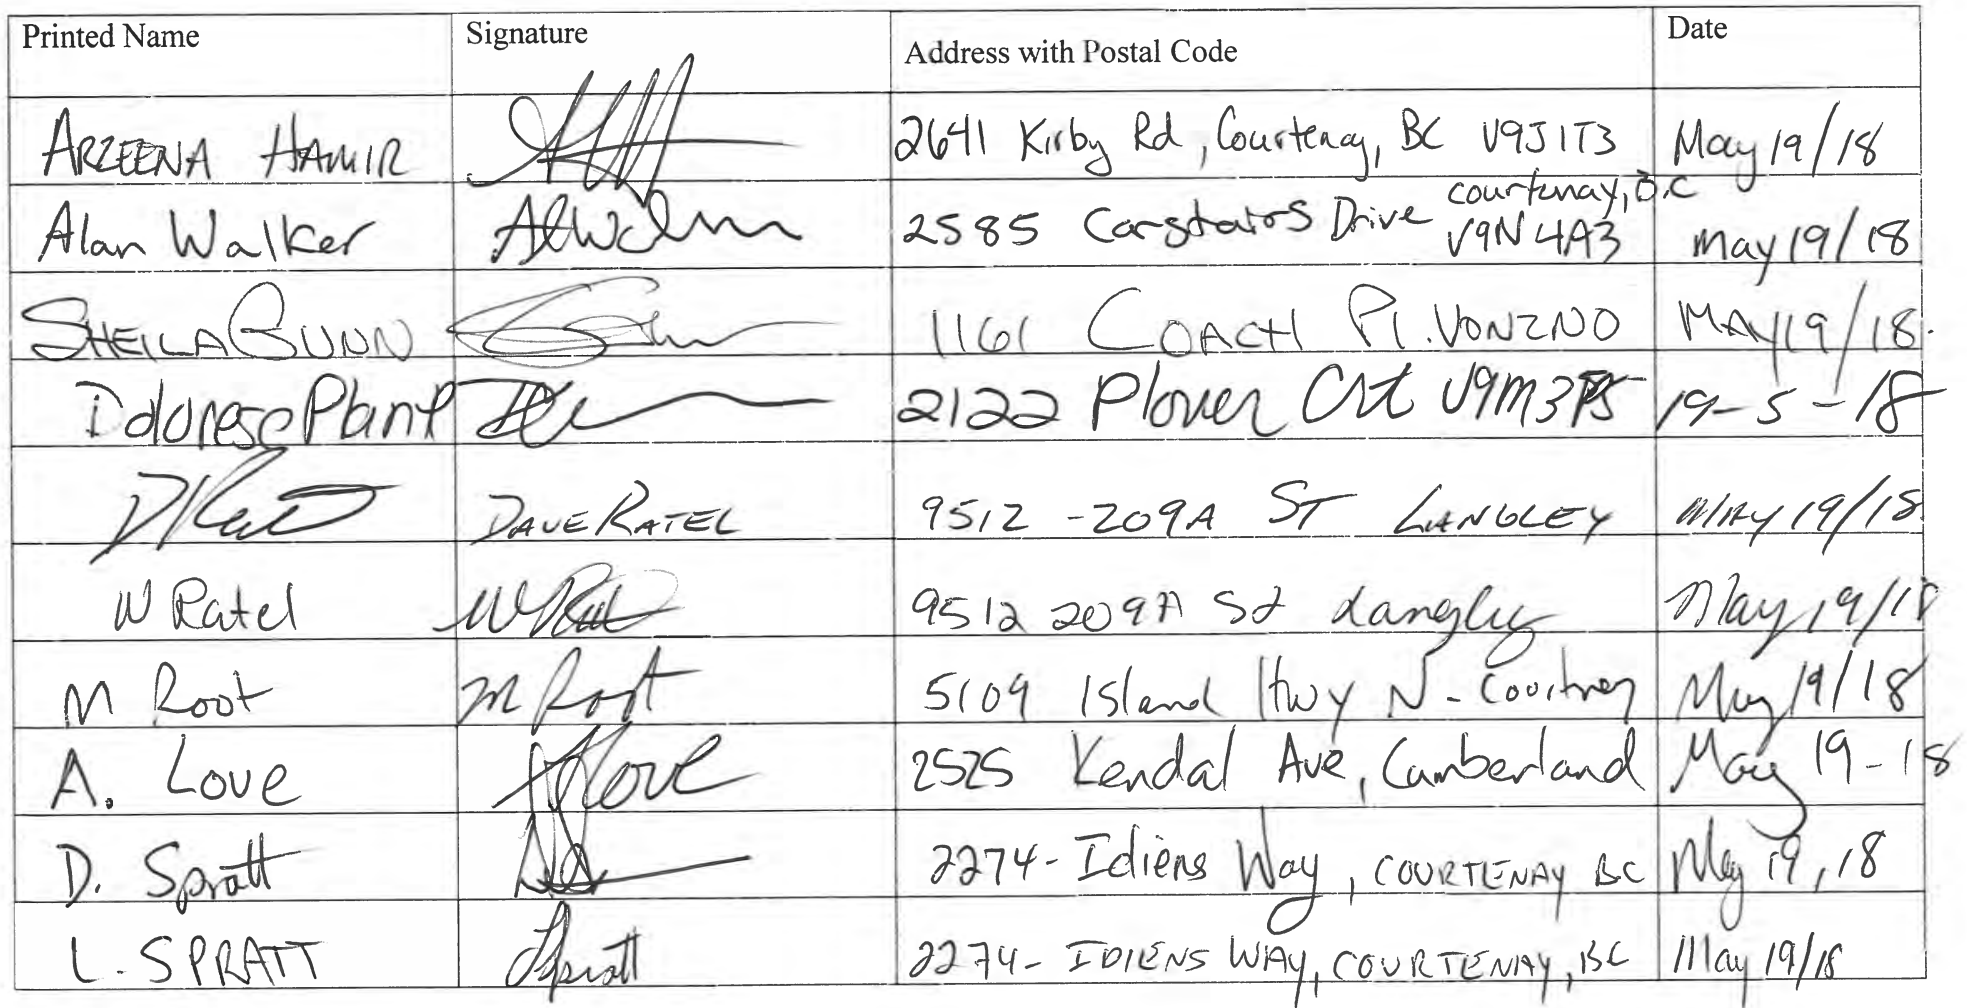 Printed Name Signature Address with Postal Code Date
ARZEENA HAMIR 2641 Kirby Rd, Courtenay, BC V9J1T3 May 19/18
Alan Walker AlWalker 2585 Carstairs Drive courtenay, B.C V9N 4A3 May 19/18
SHEILA GUNN 1161 COACH Pl. V0N2N0 MAY 19/18.
Dolores c Plant 2122 Plover Crt V9M3 19-5-18
DAVE RATEL 9512 -209A ST LANGLEY MAY 19/18
W Ratel W Ratel 9512 209A St Langley May 19/18
M Root M Root 5109 Island Hwy N - Courtney May 19/18
A. Love A Love 2525 Kendal Ave, Cumberland May 19-18
D. Spratt 2274- Idiens Way, COURTENAY BC May 19, 18
L. SPRATT LSpratt 2274- IDIENS WAY, COURTENAY, BC May 19/18